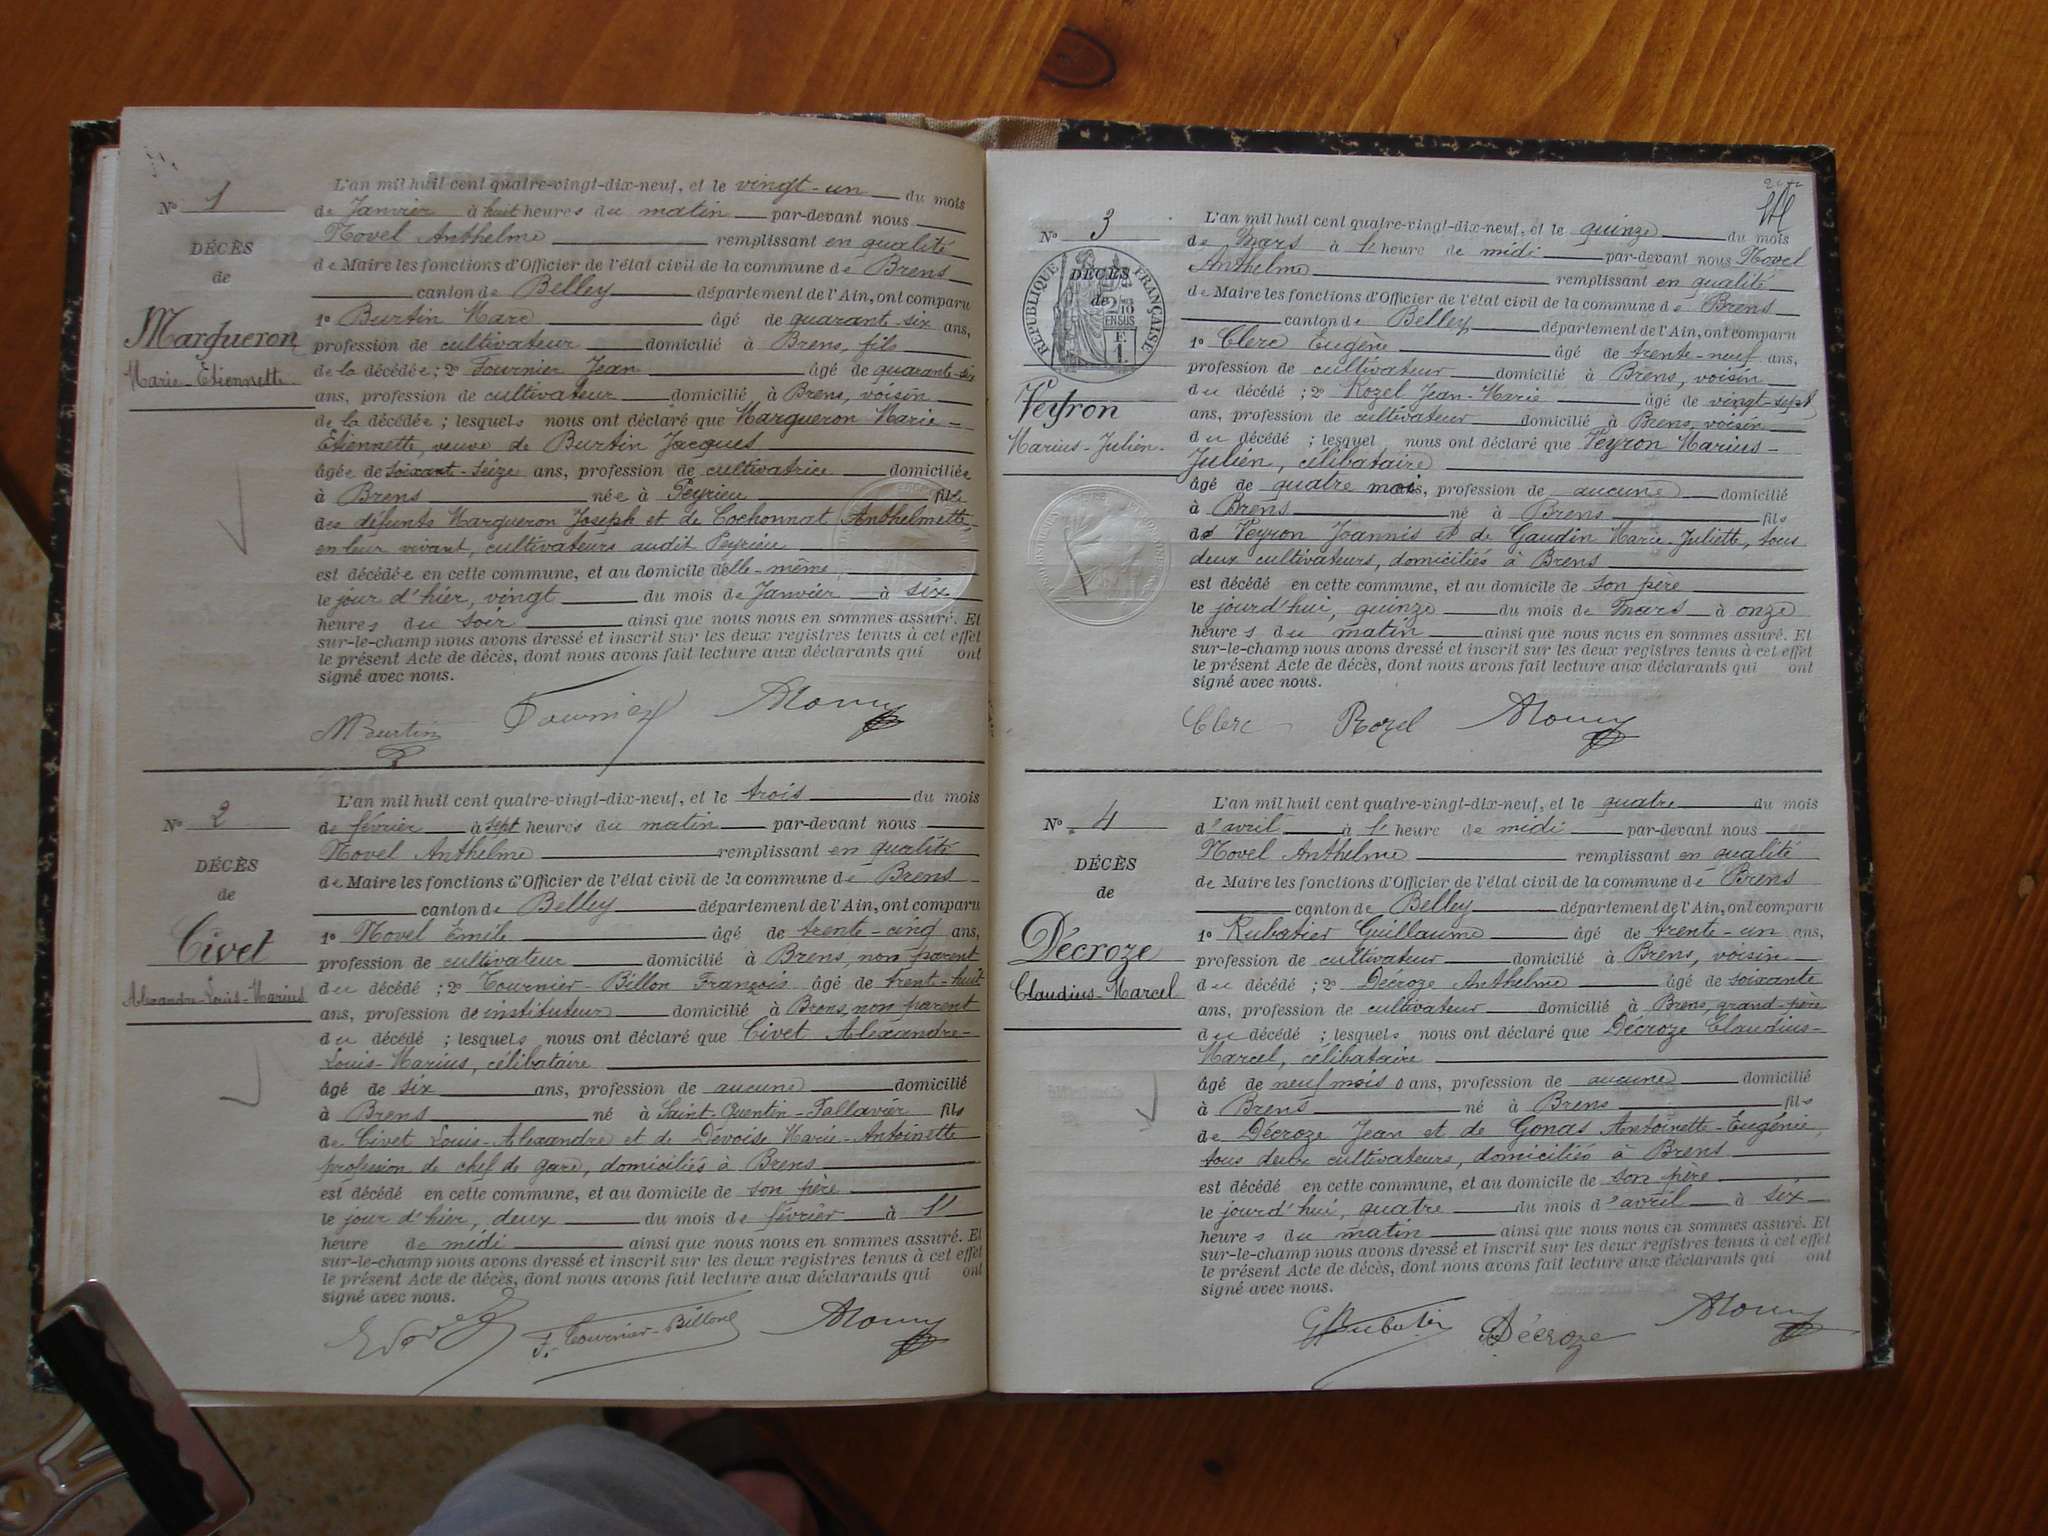 N° 1
DÉCÈS
de
Margueron
Marie-Etiennette
L'an mil huit cent quatre-vingt-dix-neuf, et le vingt-un du mois
de Janvier à huit heures du matin par-devant nous
Novel Anthelme remplissant en qualité
de Maire les fonctions d'Officier de l'état civil de la commune de Brens
canton de Belley département de l'Ain, ont comparu
1° Burtin Marc âgé de quarant-six ans,
profession de cultivateur domicilié à Brens, fils
de la décédée; 2° Fournier Jean âgé de quarante-six
ans, profession de cultivateur domicilié à Brens, voisin
de la décédée; lesquels nous ont déclaré que Margueron Marie-
Etiennette, veuve de Burtin Jacques
âgée de soixant-seize ans, profession de cultivatrice domiciliée
à Brens née à Peyrieu fille
des défunts Margueron Joseph et de Cochonnat Anthelmette,
en leur vivant, cultivateurs audit Peyrieu
est décédée en cette commune, et au domicile d'elle-même,
le jour d'hier, vingt du mois de Janvier à six
heures du soir ainsi que nous nous en sommes assuré. Et
sur-le-champ nous avons dressé et inscrit sur les deux registres tenus à cet effet
le présent Acte de décès, dont nous avons fait lecture aux déclarants qui ont
signé avec nous.
M Burtin Fournier
N° 2
DÉCÈS
de
Civet
Alexandre-Louis-Marius
L'an mil huit cent quatre-vingt-dix-neuf, et le trois du mois
de février à sept heures du matin par-devant nous
Novel Anthelme remplissant en qualité
de Maire les fonctions d'Officier de l'état civil de la commune de Brens
canton de Belley département de l'Ain, ont comparu
1° Novel Emile âgé de trente-cinq ans,
profession de cultivateur domicilié à Brens, non parent
du décédé; 2° Tournier-Billon François âgé de trent-huit
ans, profession de instituteur domicilié à Brens, non parent
du décédé; lesquels nous ont déclaré que Civet Alexandre-
Louis-Marius, célibataire
âgé de six ans, profession de aucune domicilié
à Brens né à Saint-Quentin-Fallavier fils
de Civet Louis-Alexandre et de Dévoise Marie-Antoinette
profession de chef de gare, domiciliés à Brens
est décédé en cette commune, et au domicile de son père
le jour d'hier, deux du mois de février à 1'
heure de midi ainsi que nous nous en sommes assuré. Et
sur-le-champ nous avons dressé et inscrit sur les deux registres tenus à cet effet
le présent Acte de décès, dont nous avons fait lecture aux déclarants qui ont
signé avec nous.
F. Tournier-Billon
N° 3
RÉPUBLIQUE FRANÇAISE
DÉCÈS
de
2/10
EN SUS
F.
1.
Veyron
Marius-Julien
L'an mil huit cent quatre-vingt-dix-neuf, et le quinze du mois
de Mars à 1' heure de midi par-devant nous Novel
Anthelme remplissant en qualité
de Maire les fonctions d'Officier de l'état civil de la commune de Brens
canton de Belley département de l'Ain, ont comparu
1° Clerc Eugène âgé de trente-neuf ans,
profession de cultivateur domicilié à Brens, voisin
du décédé; 2° Rozel Jean-Marie âgé de vingt-sept
ans, profession de cultivateur domicilié à Brens, voisin
du décédé; lesquel nous ont déclaré que Veyron Marius-
Julien, célibataire
âgé de quatre mois, profession de aucune domicilié
à Brens né à Brens fils
de Veyron Joannis et de Gaudin Marie-Juliette, tous
deux cultivateurs, domiciliés à Brens
est décédé en cette commune, et au domicile de son père
le jourd'hui, quinze du mois de Mars à onze
heures du matin ainsi que nous nous en sommes assuré. Et
sur-le-champ nous avons dressé et inscrit sur les deux registres tenus à cet effet
le présent Acte de décès, dont nous avons fait lecture aux déclarants qui ont
signé avec nous.
Clerc Rozel
N° 4
DÉCÈS
de
Décroze
Claudius-Marcel
L'an mil huit cent quatre-vingt-dix-neuf, et le quatre du mois
d'avril à 1' heure de midi par-devant nous
Novel Anthelme remplissant en qualité
de Maire les fonctions d'Officier de l'état civil de la commune de Brens
canton de Belley département de l'Ain, ont comparu
1° Rubatier Guillaume âgé de trente-un ans,
profession de cultivateur domicilié à Brens, voisin
du décédé; 2° Décroze Anthelme âgé de soixante
ans, profession de cultivateur domicilié à Brens, grand-père
du décédé; lesquels nous ont déclaré que Décroze Claudius-
Marcel, célibataire
âgé de neuf mois 0 ans, profession de aucune domicilié
à Brens né à Brens fils
de Décroze Jean et de Gonas Antoinette-Eugénie,
tous deux cultivateurs, domiciliés à Brens
est décédé en cette commune, et au domicile de son père
le jourd'hui, quatre du mois d'avril à six
heures du matin ainsi que nous nous en sommes assuré. Et
sur-le-champ nous avons dressé et inscrit sur les deux registres tenus à cet effet
le présent Acte de décès, dont nous avons fait lecture aux déclarants qui ont
signé avec nous.
G Rubatier Décroze